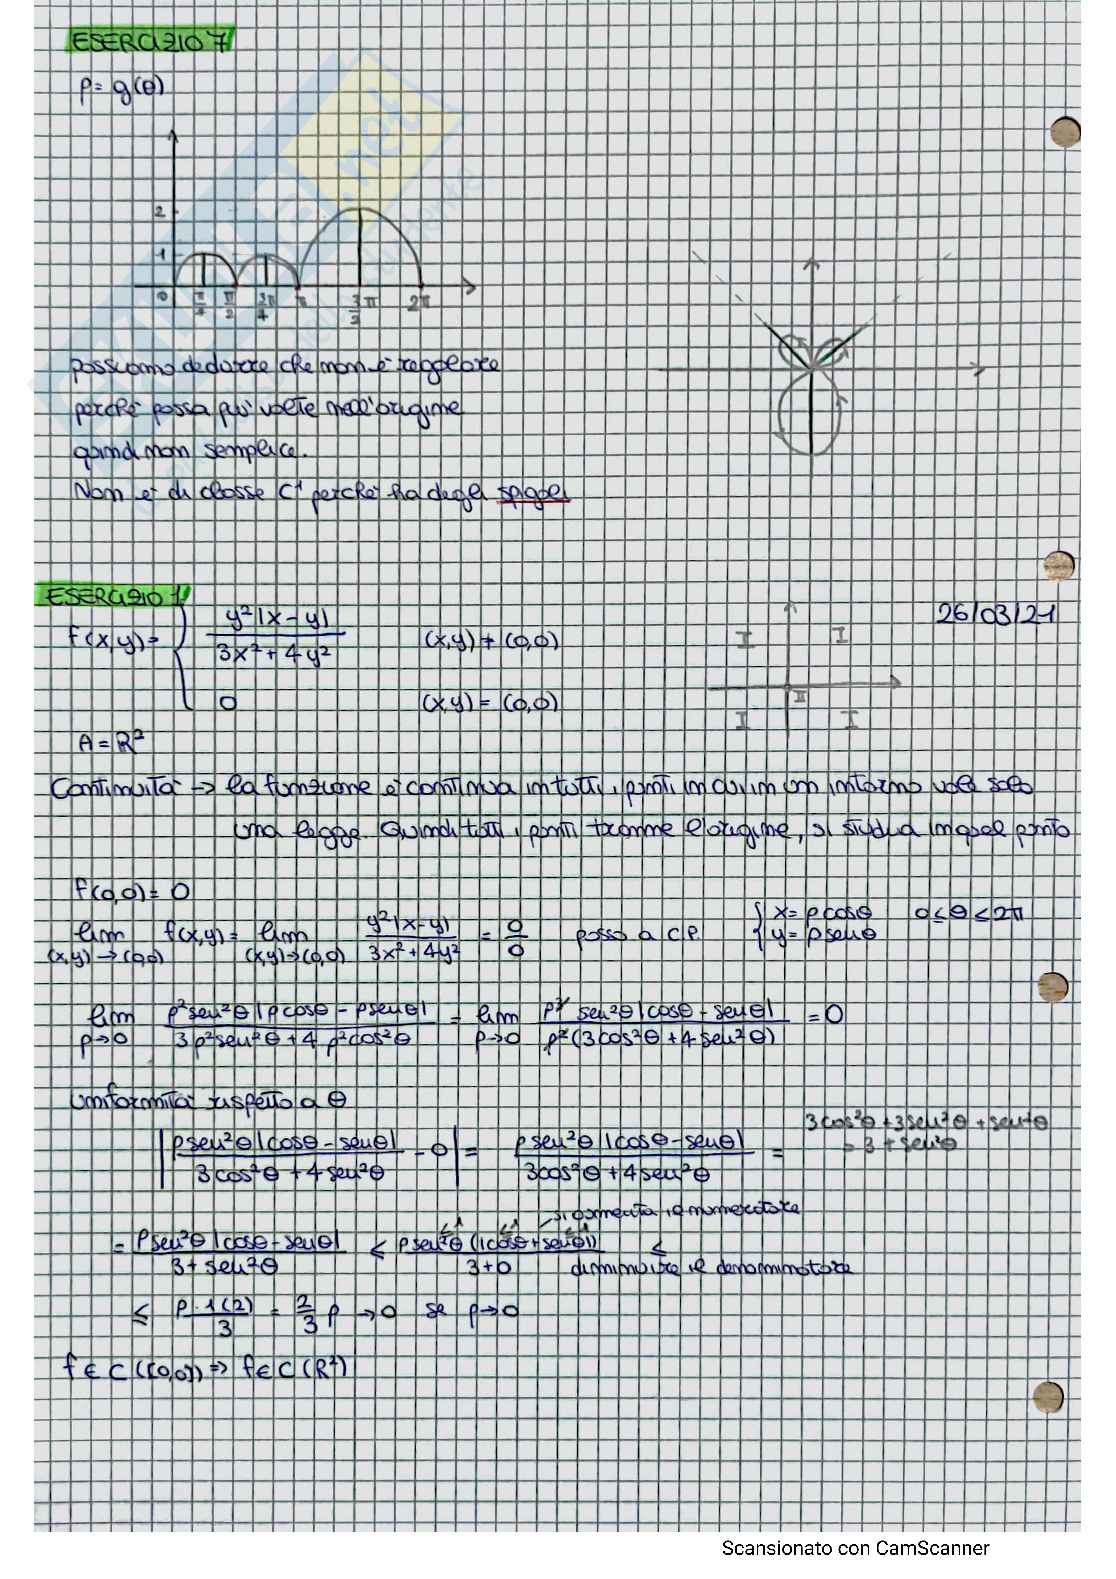 ESERCIZIO 7
ρ = g(θ)
2
1
0 π/4 π/2 3π/4 π 3/2 π 2π
possiamo dedurre che non è regolare
perché passa più volte nell'origine
quindi non semplice.
Non è di classe C¹ perché ha degli spigoli
ESERCIZIO 1
26/03/21
f(x,y) = { y²|x-y| / 3x²+4y² (x,y) ≠ (0,0)
0 (x,y) = (0,0)
I I
II
I I
A = R²
Continuità → la funzione è continua in tutti i punti in cui in un intorno vale solo
una legge. Quindi tutti i punti tranne l'origine, si studia in quel punto
f(0,0) = 0
lim (x,y)→(0,0) f(x,y) = lim (x,y)→(0,0) y²|x-y| / 3x²+4y² = 0/0 passo a C.P. { x = ρcosθ 0 ≤ θ ≤ 2π
y = ρsenθ
lim ρ→0 ρ²sen²θ |ρcosθ - ρsenθ| / 3ρ²sen²θ + 4ρ²cos²θ = lim ρ→0 ρ³ sen²θ |cosθ - senθ| / ρ²(3cos²θ + 4sen²θ) = 0
Uniformità rispetto a θ
3cos²θ + 3sen²θ + sen²θ
= 3 + sen²θ
| ρsen²θ |cosθ - senθ| / 3cos²θ + 4sen²θ - 0 | = ρsen²θ |cosθ - senθ| / 3cos²θ + 4sen²θ =
si aumenta il numeratore
= ρsen²θ |cosθ - senθ| / 3 + sen²θ ≤ ρsen²θ (|cosθ + senθ|) / 3+0 ≤
≤1 ≤1 ≤1
diminuire il denominatore
≤ ρ·1(2) / 3 = 2/3 ρ → 0 se ρ→0
f ∈ C((0,0)) ⇒ f ∈ C(R²)
Scansionato con CamScanner